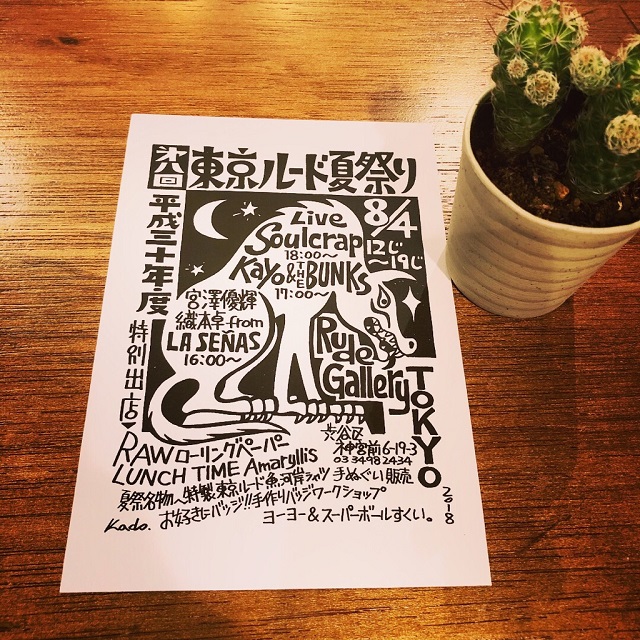 第八回 東京ルード夏祭り
平成三十年度
8/4
12じ〜19じ
Live
Soulcrap
18:00〜
Kayo & THE BUNKS
17:00〜
宮澤優輝
織本卓 from
LA SEÑAS
16:00〜
Rude Gallery
TOKYO
2018
渋谷区
神宮前6-19-3
03 3498 2434
特別出店
RAW ローリングペーパー
LUNCH TIME Amaryllis
夏祭名物 特製東京ルード魚河岸シャツ 手ぬぐい販売
お好きにバッジ!!手作りバッジワークショップ
ヨーヨー&スーパーボールすくい。
Kado.